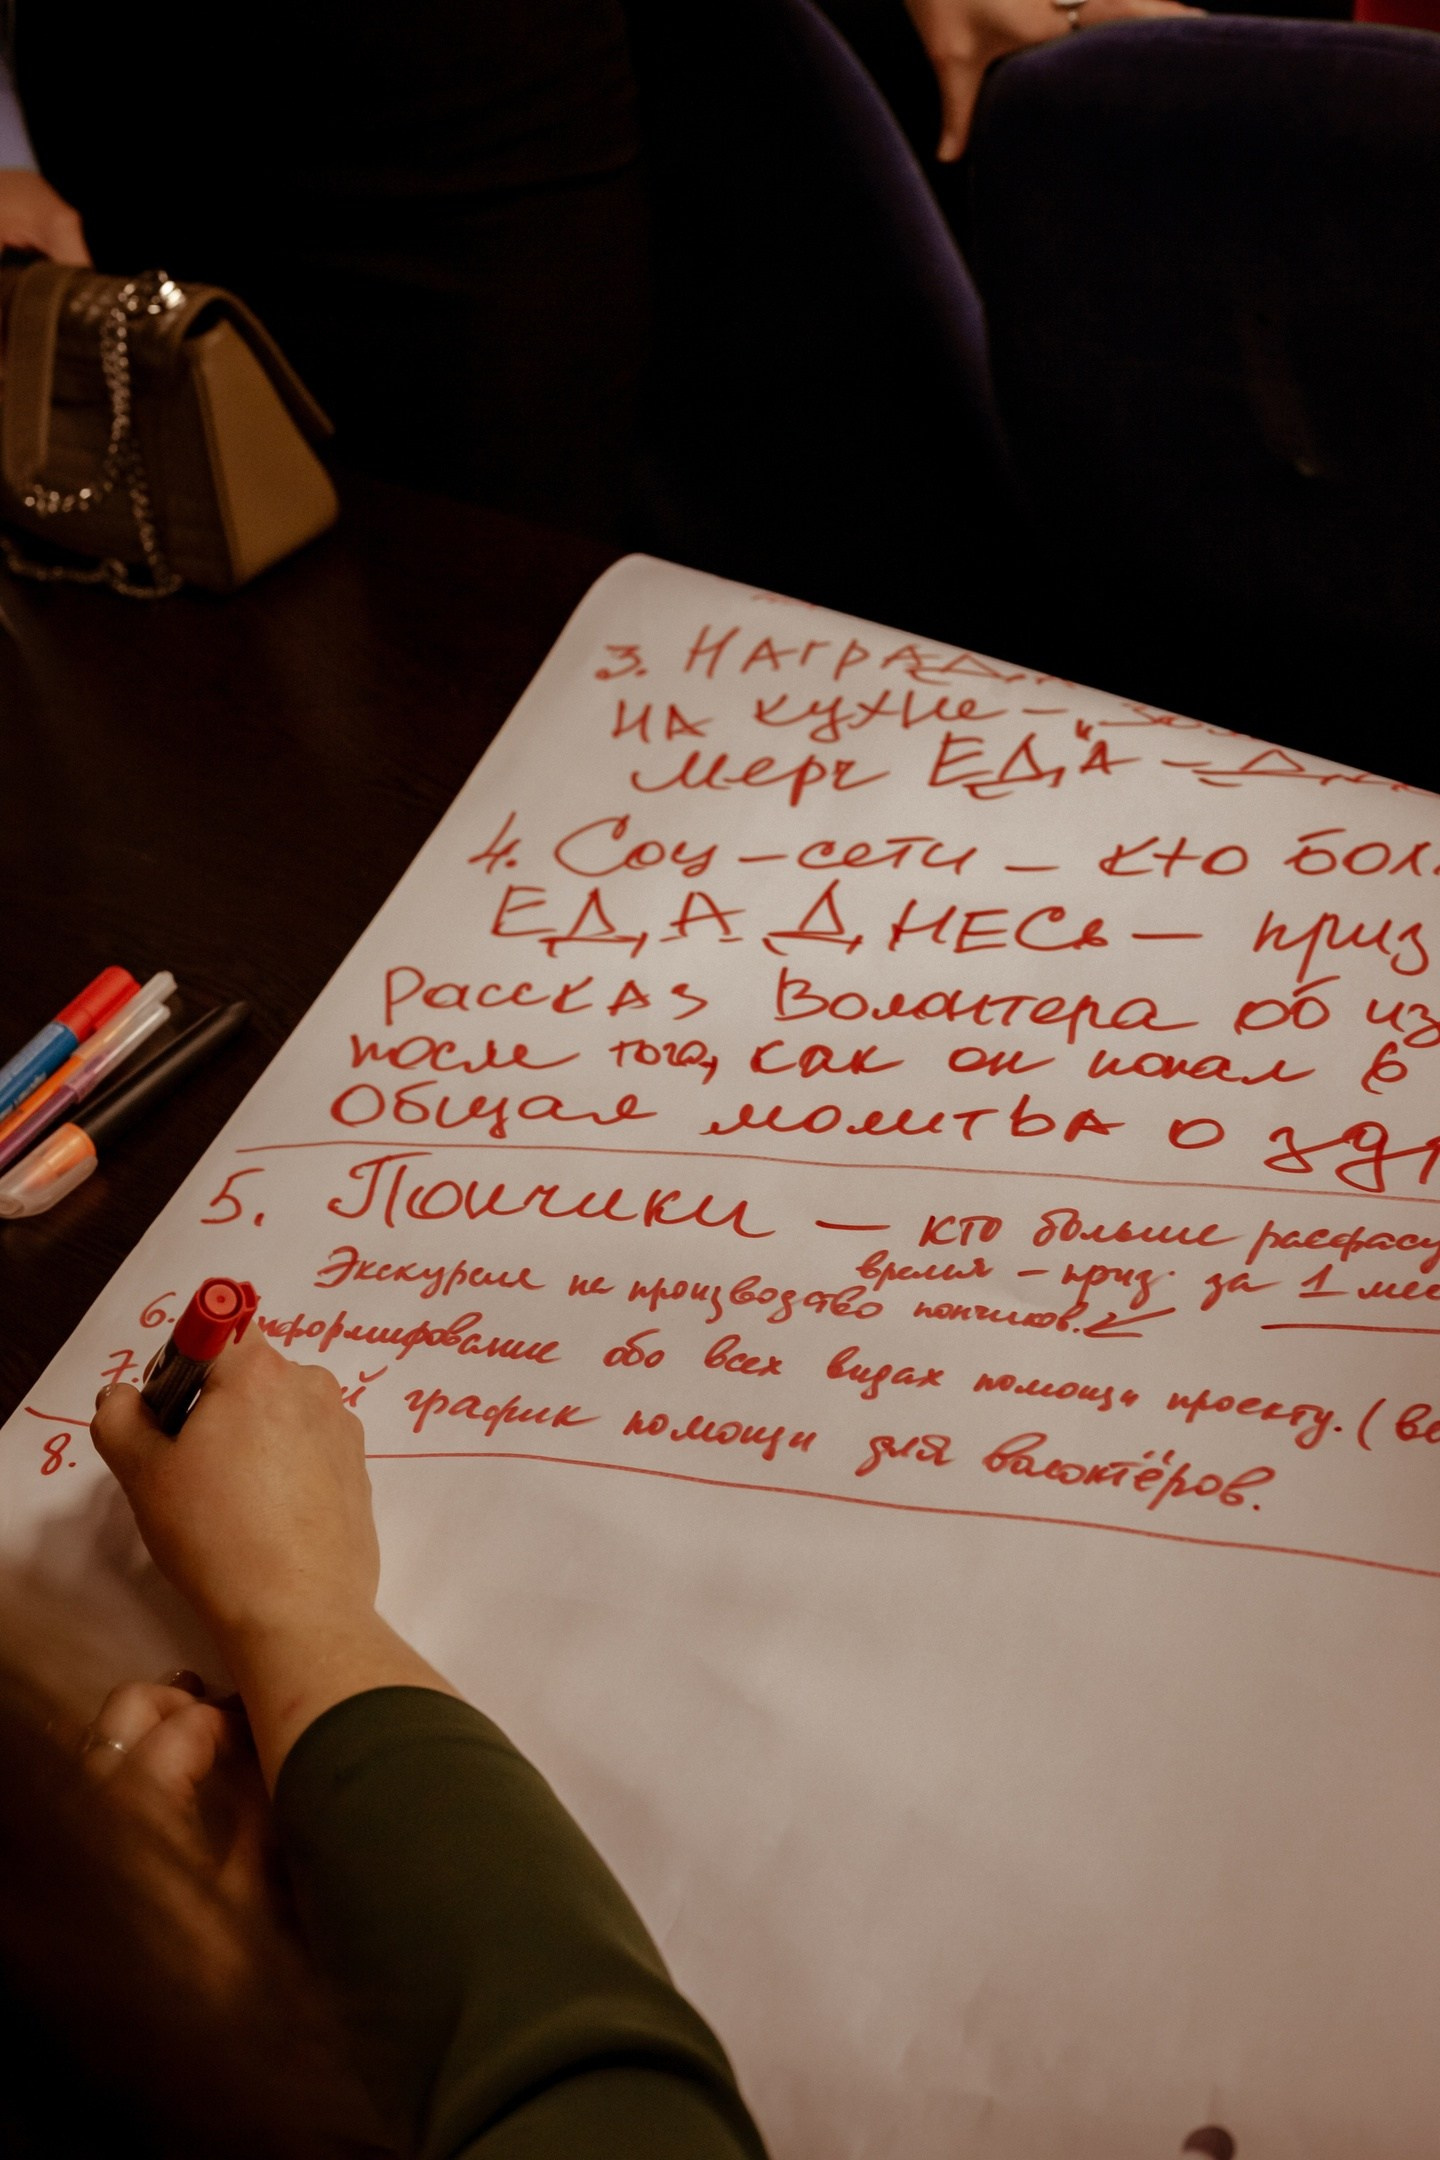 3. НАГРАД
НА кухне - "
мерч ЕДА -
4. Соц-сети - кто бол
ЕДА ДНЕСЬ - приз
Рассказ Волонтера об из
после того, как он попал в
Общая молитва о здр
5. Пончики - кто больше расфасу
время - приз. за 1 мес
Экскурсия на производство пончиков.
6. Информирование обо всех видах помощи проекту. (
7. й график помощи для волонтёров.
8.